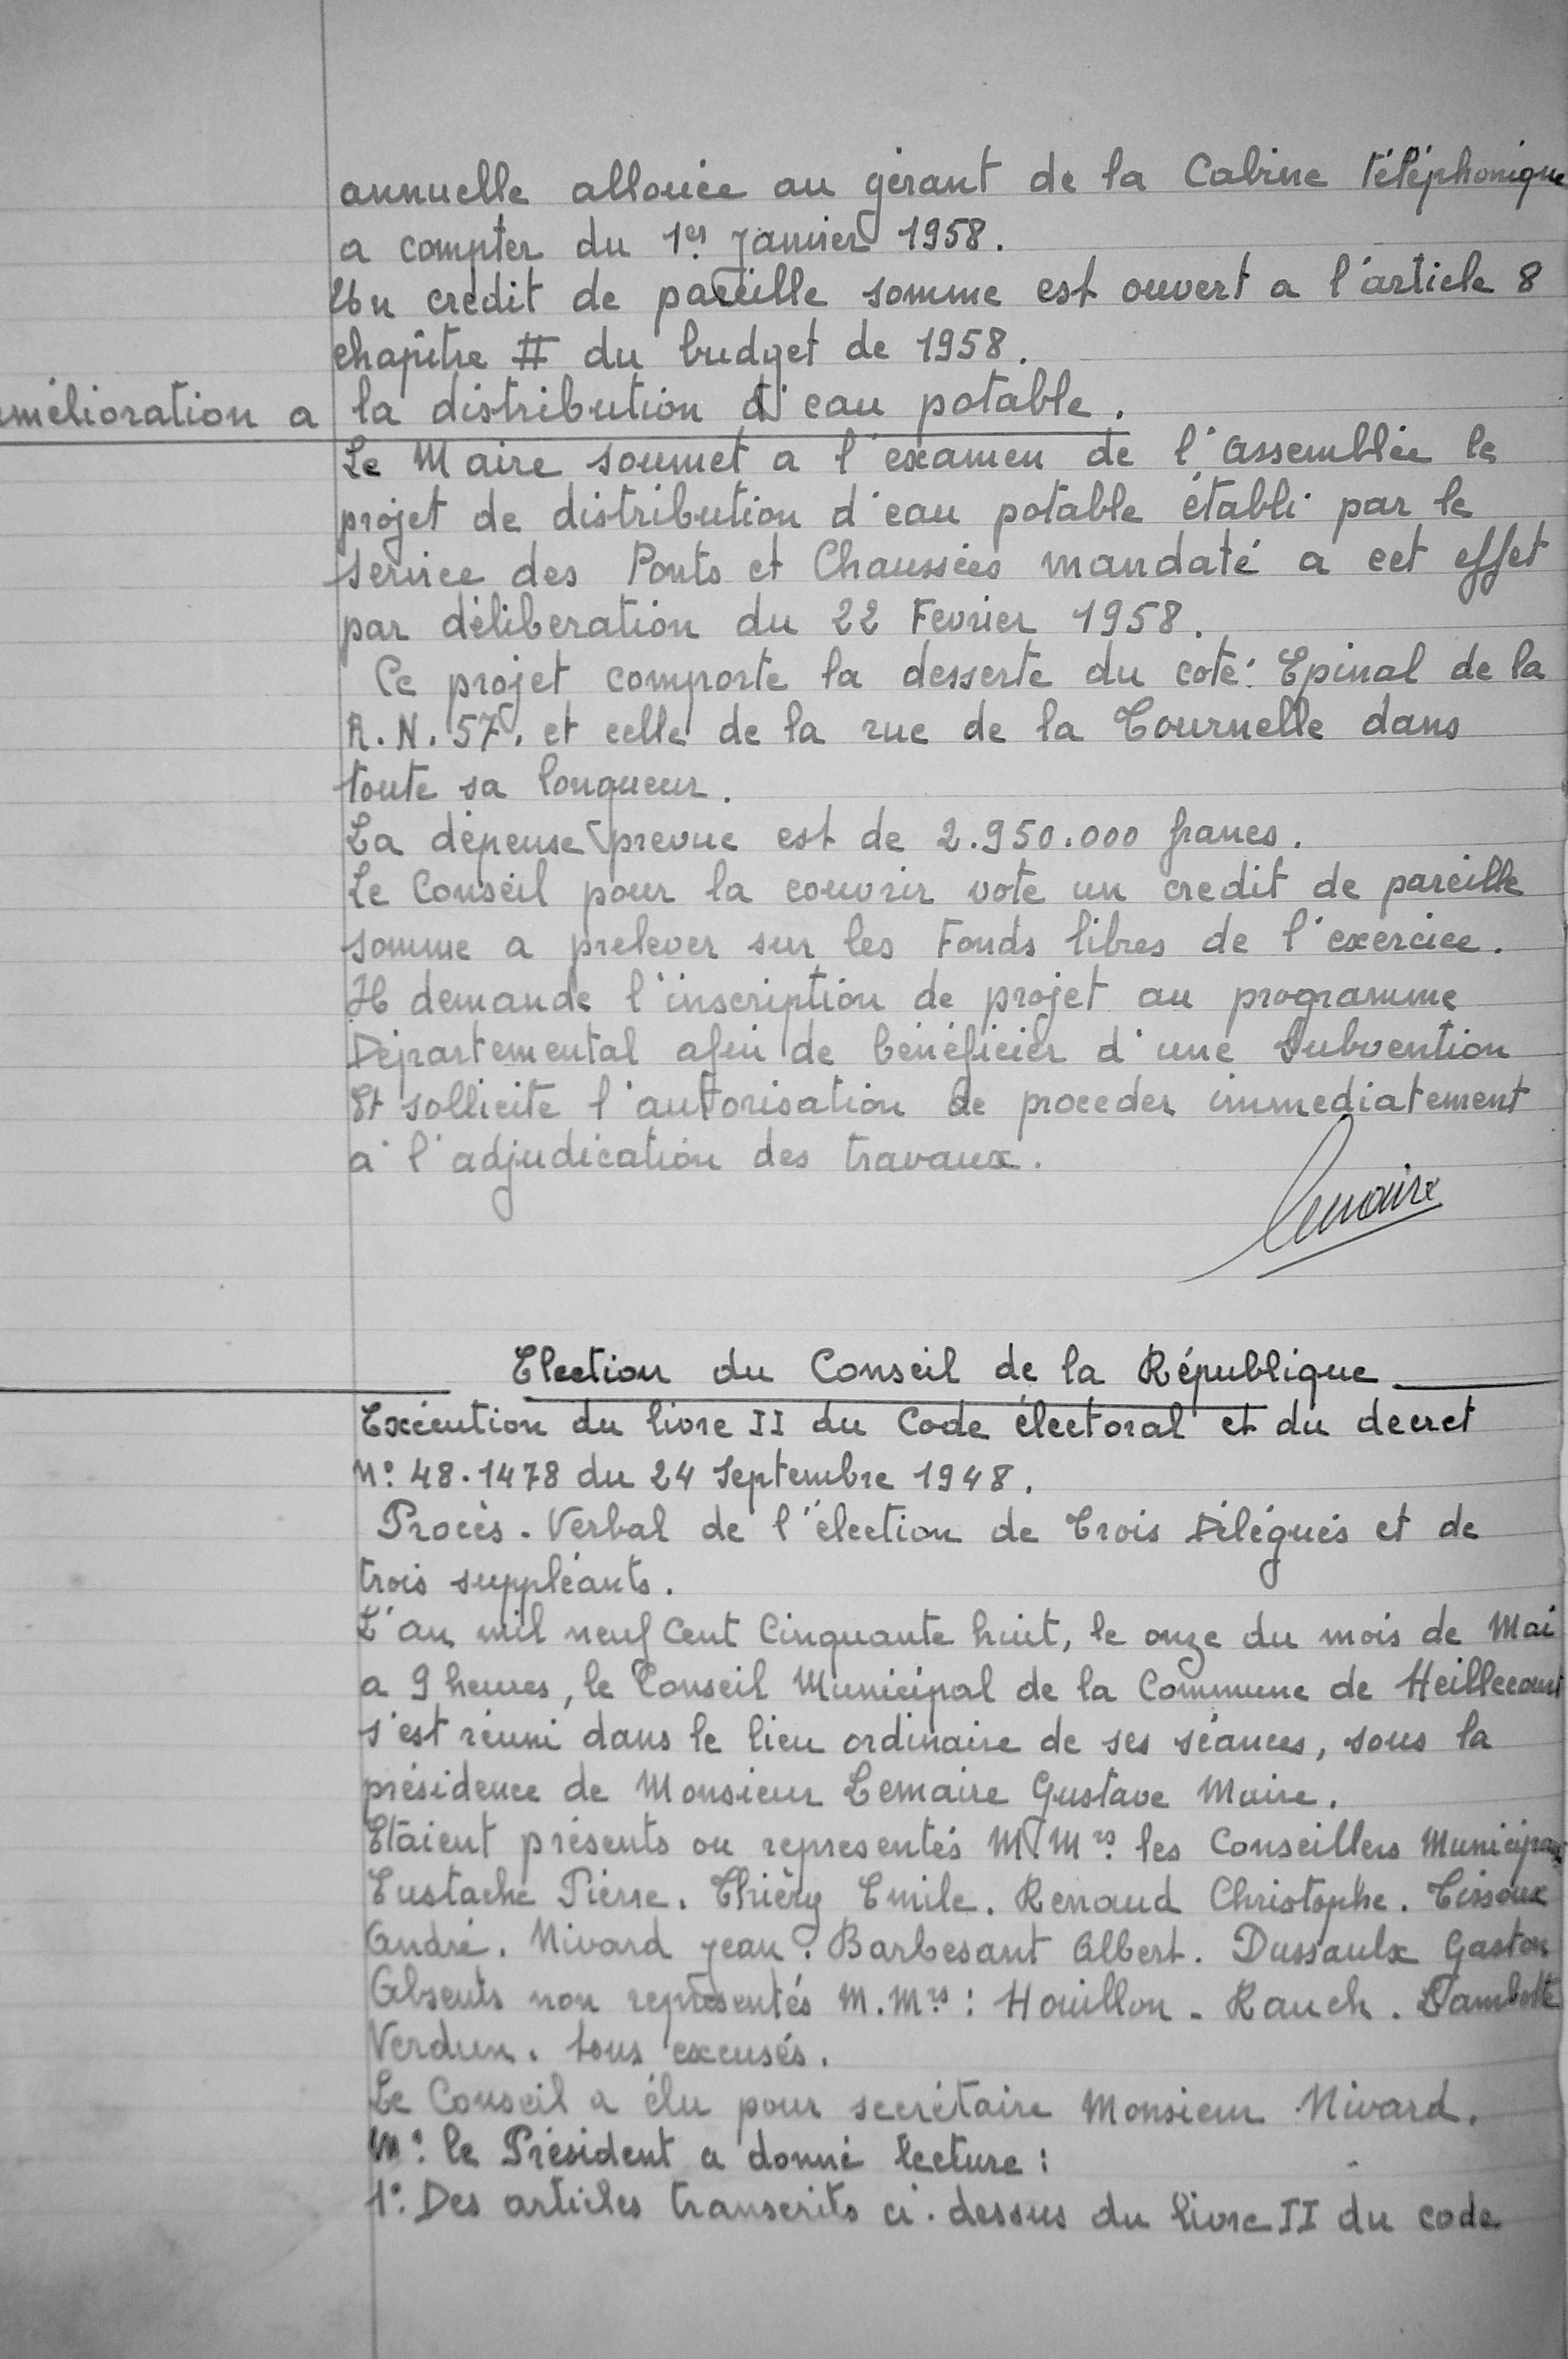 annuelle allouée au gérant de la Cabine téléphonique
a compter du 1er Janvier 1958.
Un credit de pareille somme est ouvert a l'article 8
chapitre II du budget de 1958.
amélioration a la distribution d'eau potable.
Le Maire soumet a l'examen de l'assemblée le
projet de distribution d'eau potable établi par le
service des Ponts et Chaussées mandaté a cet effet
par délibération du 22 Fevrier 1958.
Ce projet comporte la desserte du coté Epinal de la
R.N. 57, et celle de la rue de la Tournelle dans
toute sa longueur.
La dépense prevue est de 2.950.000 francs.
Le Conseil pour la couvrir vote un credit de pareille
somme a prelever sur les Fonds libres de l'exercice.
Il demande l'inscription de projet au programme
Départemental afin de bénéficier d'une Subvention
Et sollicite l'autorisation de proceder immediatement
a l'adjudication des travaux.
Lemaire
Election du Conseil de la République
Exécution du livre II du Code électoral et du decret
N° 48.1478 du 24 Septembre 1948.
Procès-Verbal de l'élection de Trois Délégués et de
trois suppléants.
L'an mil neuf Cent Cinquante huit, le onze du mois de Mai
a 9 heures, le Conseil Municipal de la Commune de Heillecourt
s'est réuni dans le lieu ordinaire de ses séances, sous la
présidence de Monsieur Lemaire Gustave Maire.
Etaient présents ou representés M.Mrs les Conseillers Municipaux
Eustache Pierre. Thiéry Emile. Renaud Christophe. Tissoux
André. Nivard Jean. Barbesant Albert. Dussaulx Gaston
Absents non représentés M.Mrs : Houillon - Rauch.
Verdun. tous excusés.
Le Conseil a élu pour secrétaire Monsieur Nivard.
Mr le Président a donné lecture :
1° Des articles transcrits ci-dessus du livre II du code